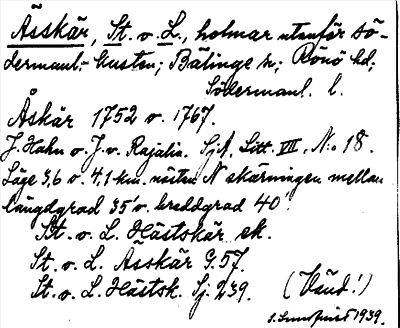 Ässkär, St. o. L., holmar utanför sö-
dermanl.-kusten; Bälinge sn; Rönö hd;
Södermanl. l.
Åskär 1752 o. 1767.
J. Hahn o. J. v. Rajalin. SjA, Litt. VII, N:o 18.
Läge 3,6 o. 4,1 km. nästan N skärningen mellan
längdgrad 35' o. breddgrad 40'.
St. o. L. Hästskär ek.
St. o. L. Ässkär G.57.
St. o. L. Hästsk. Sj. 239.
(Vänd!)
1939.